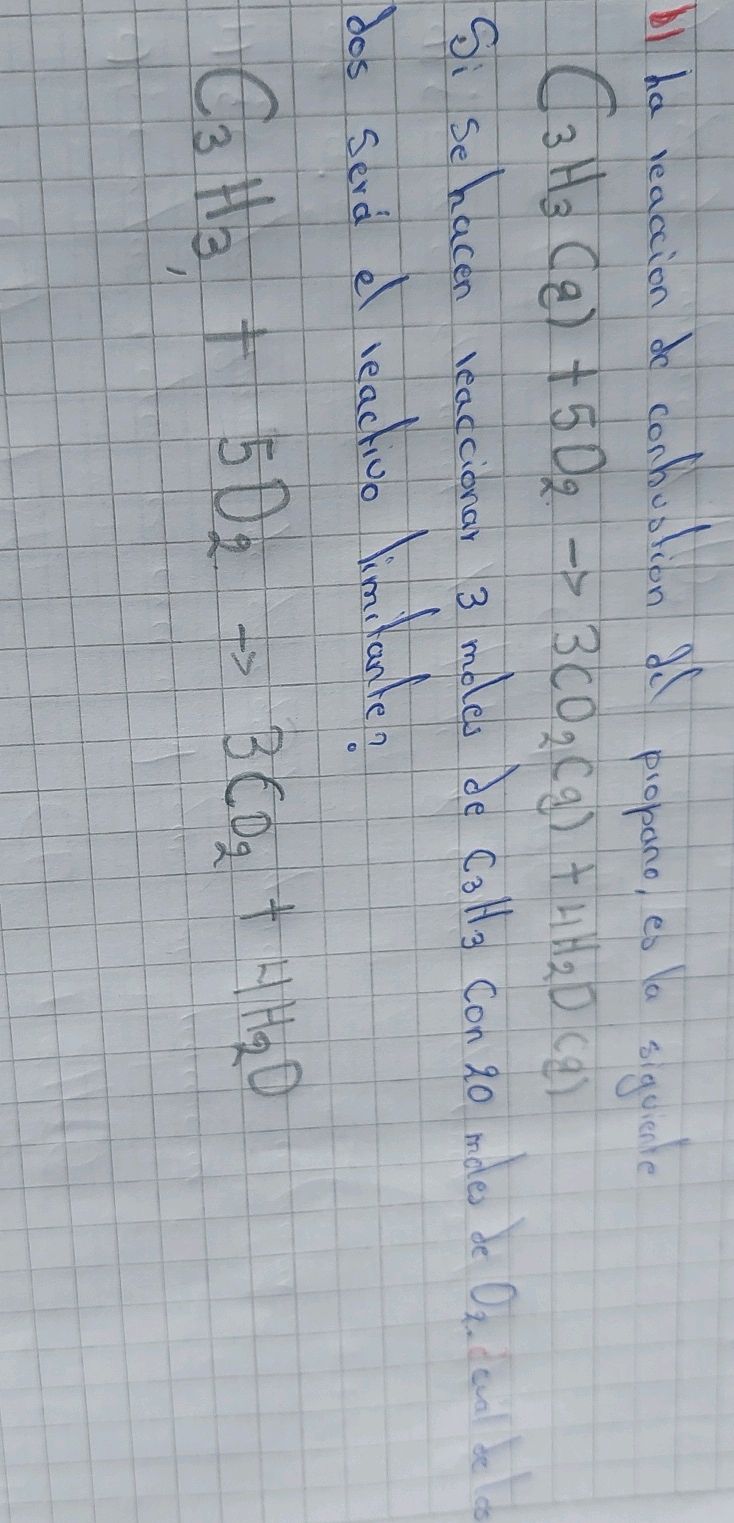 b) La reaccion de conbustion del propano, es la siguiente
C₃H₃(g) + 5O₂ → 3CO₂(g) + 4H₂O(g)
Si se hacen reaccionar 3 moles de C₃H₃ con 20 moles de O₂. ¿cuál de los
dos será el reactivo limitante?
C₃H₃, + 5O₂ → 3CO₂ + 4H₂O